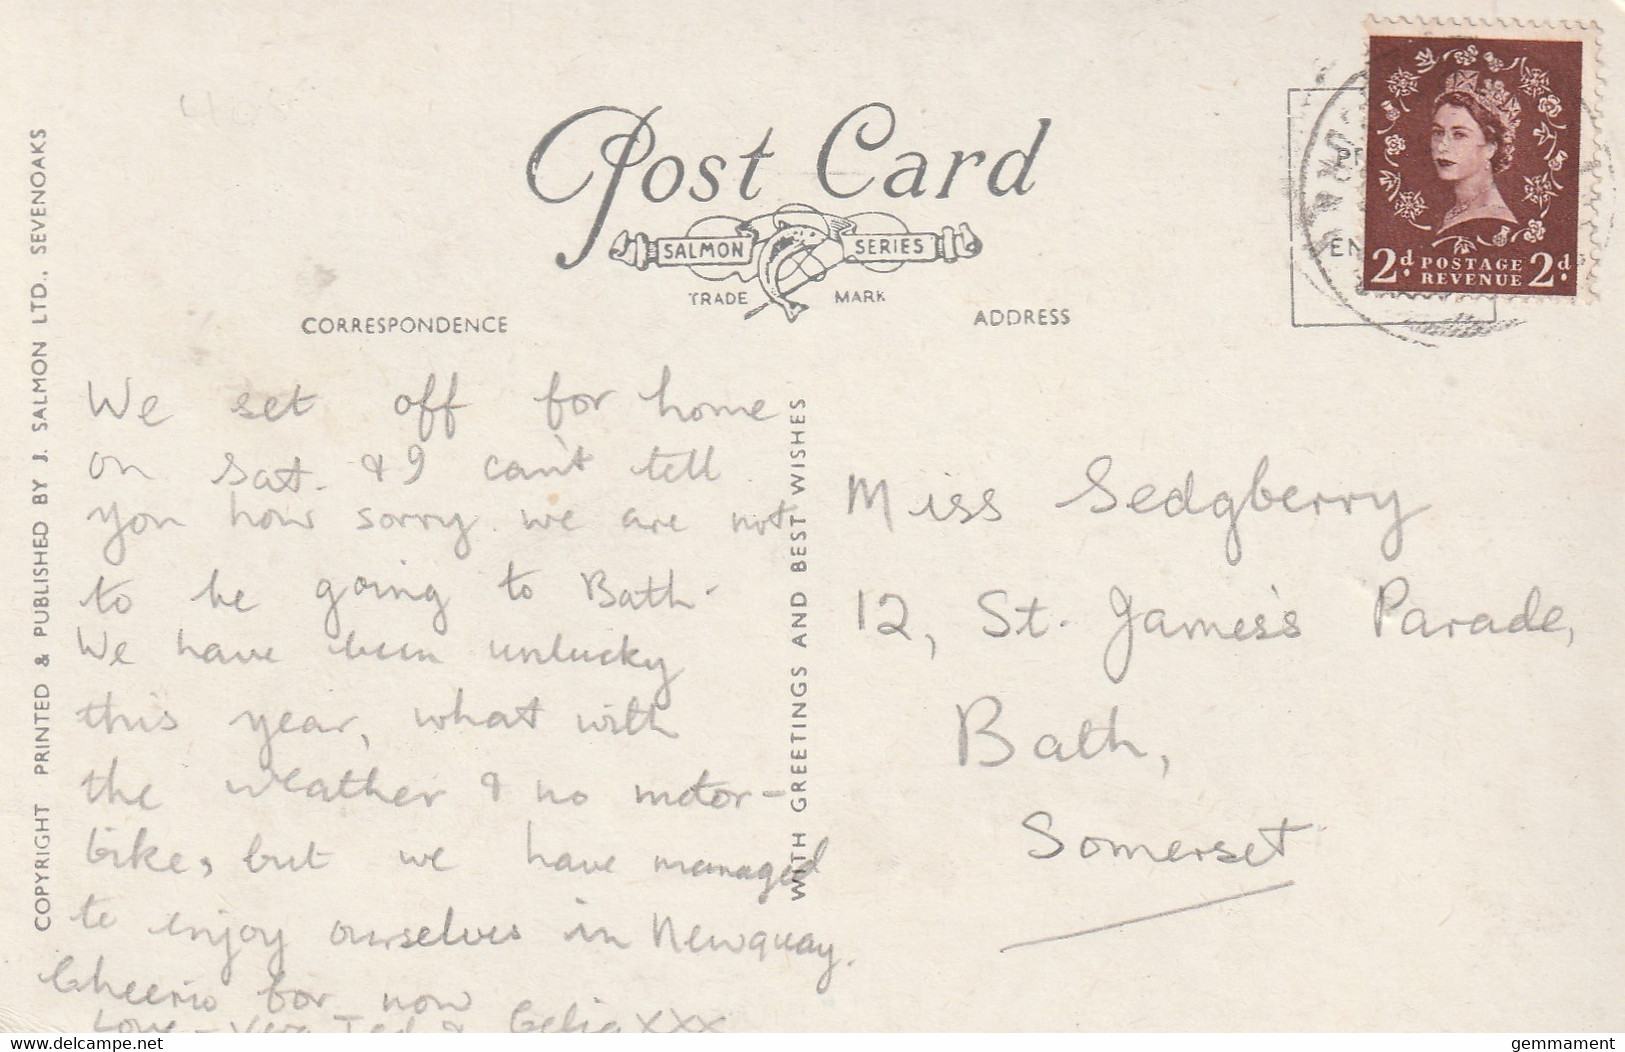 Post Card
SALMON SERIES
TRADE MARK
CORRESPONDENCE
ADDRESS
COPYRIGHT PRINTED & PUBLISHED BY J. SALMON LTD., SEVENOAKS
WITH GREETINGS AND BEST WISHES
2d. POSTAGE REVENUE 2d.
We set off for home
on Sat. & I can't tell
you how sorry we are not
to be going to Bath.
We have been unlucky
this year, what with
the weather & no motor-
bike, but we have managed
to enjoy ourselves in Newquay.
Cheerio for now
Love - Vera Ted & Celia XXX
Miss Sedgberry
12, St. James's Parade,
Bath,
Somerset
www.delcampe.net
gemmament